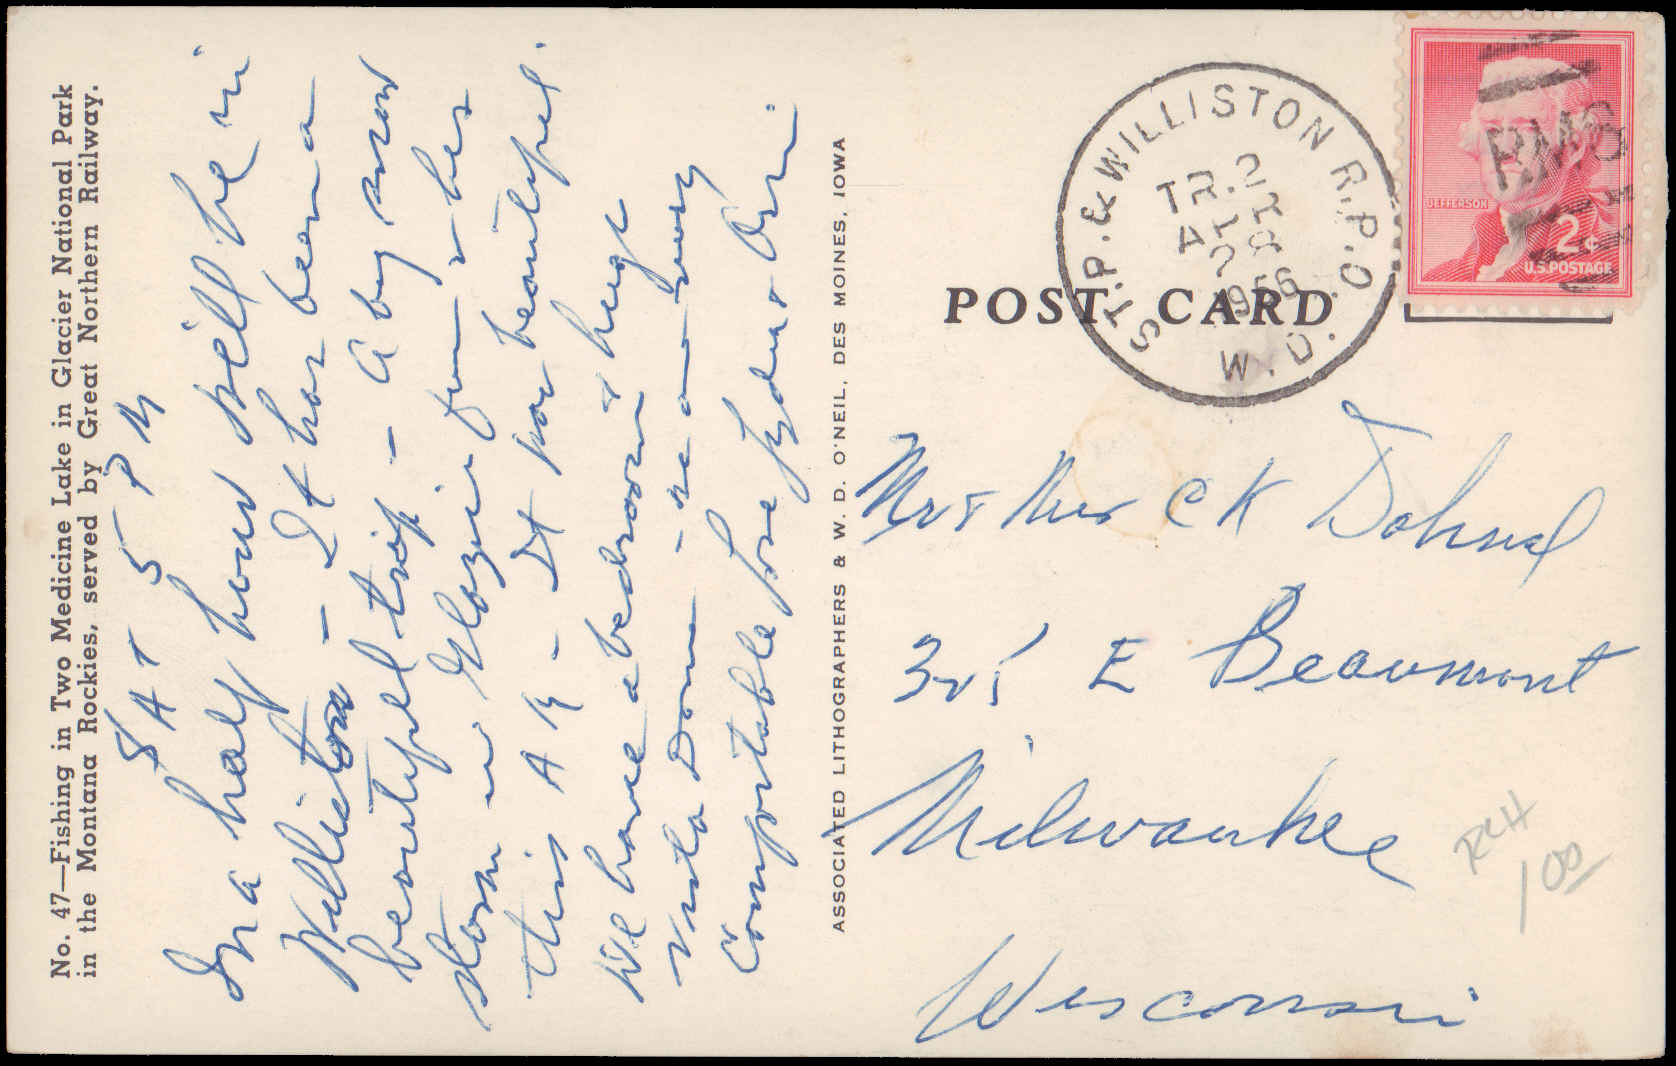 No. 47—Fishing in Two Medicine Lake in Glacier National Park
in the Montana Rockies, served by Great Northern Railway.
SAT 5 PM
In a half hour will be in
Williston - It has been a
beautiful trip - A big snow
storm in Glazier from
this AM - It was beautiful.
We have a bedroom & huge
Vista Dome - so are very
Comfortable Love Lydia & Orn
ASSOCIATED LITHOGRAPHERS & W. D. O'NEIL, DES MOINES, IOWA
POST CARD
ST.P. & WILLISTON R.P.O.
TR. 2
APR
1956
W.D.
RMS
JEFFERSON
2¢
U.S. POSTAGE
Mr & Mrs C K Dohnal
325 E Beaumont
Milwaukee
Wisconsin
100